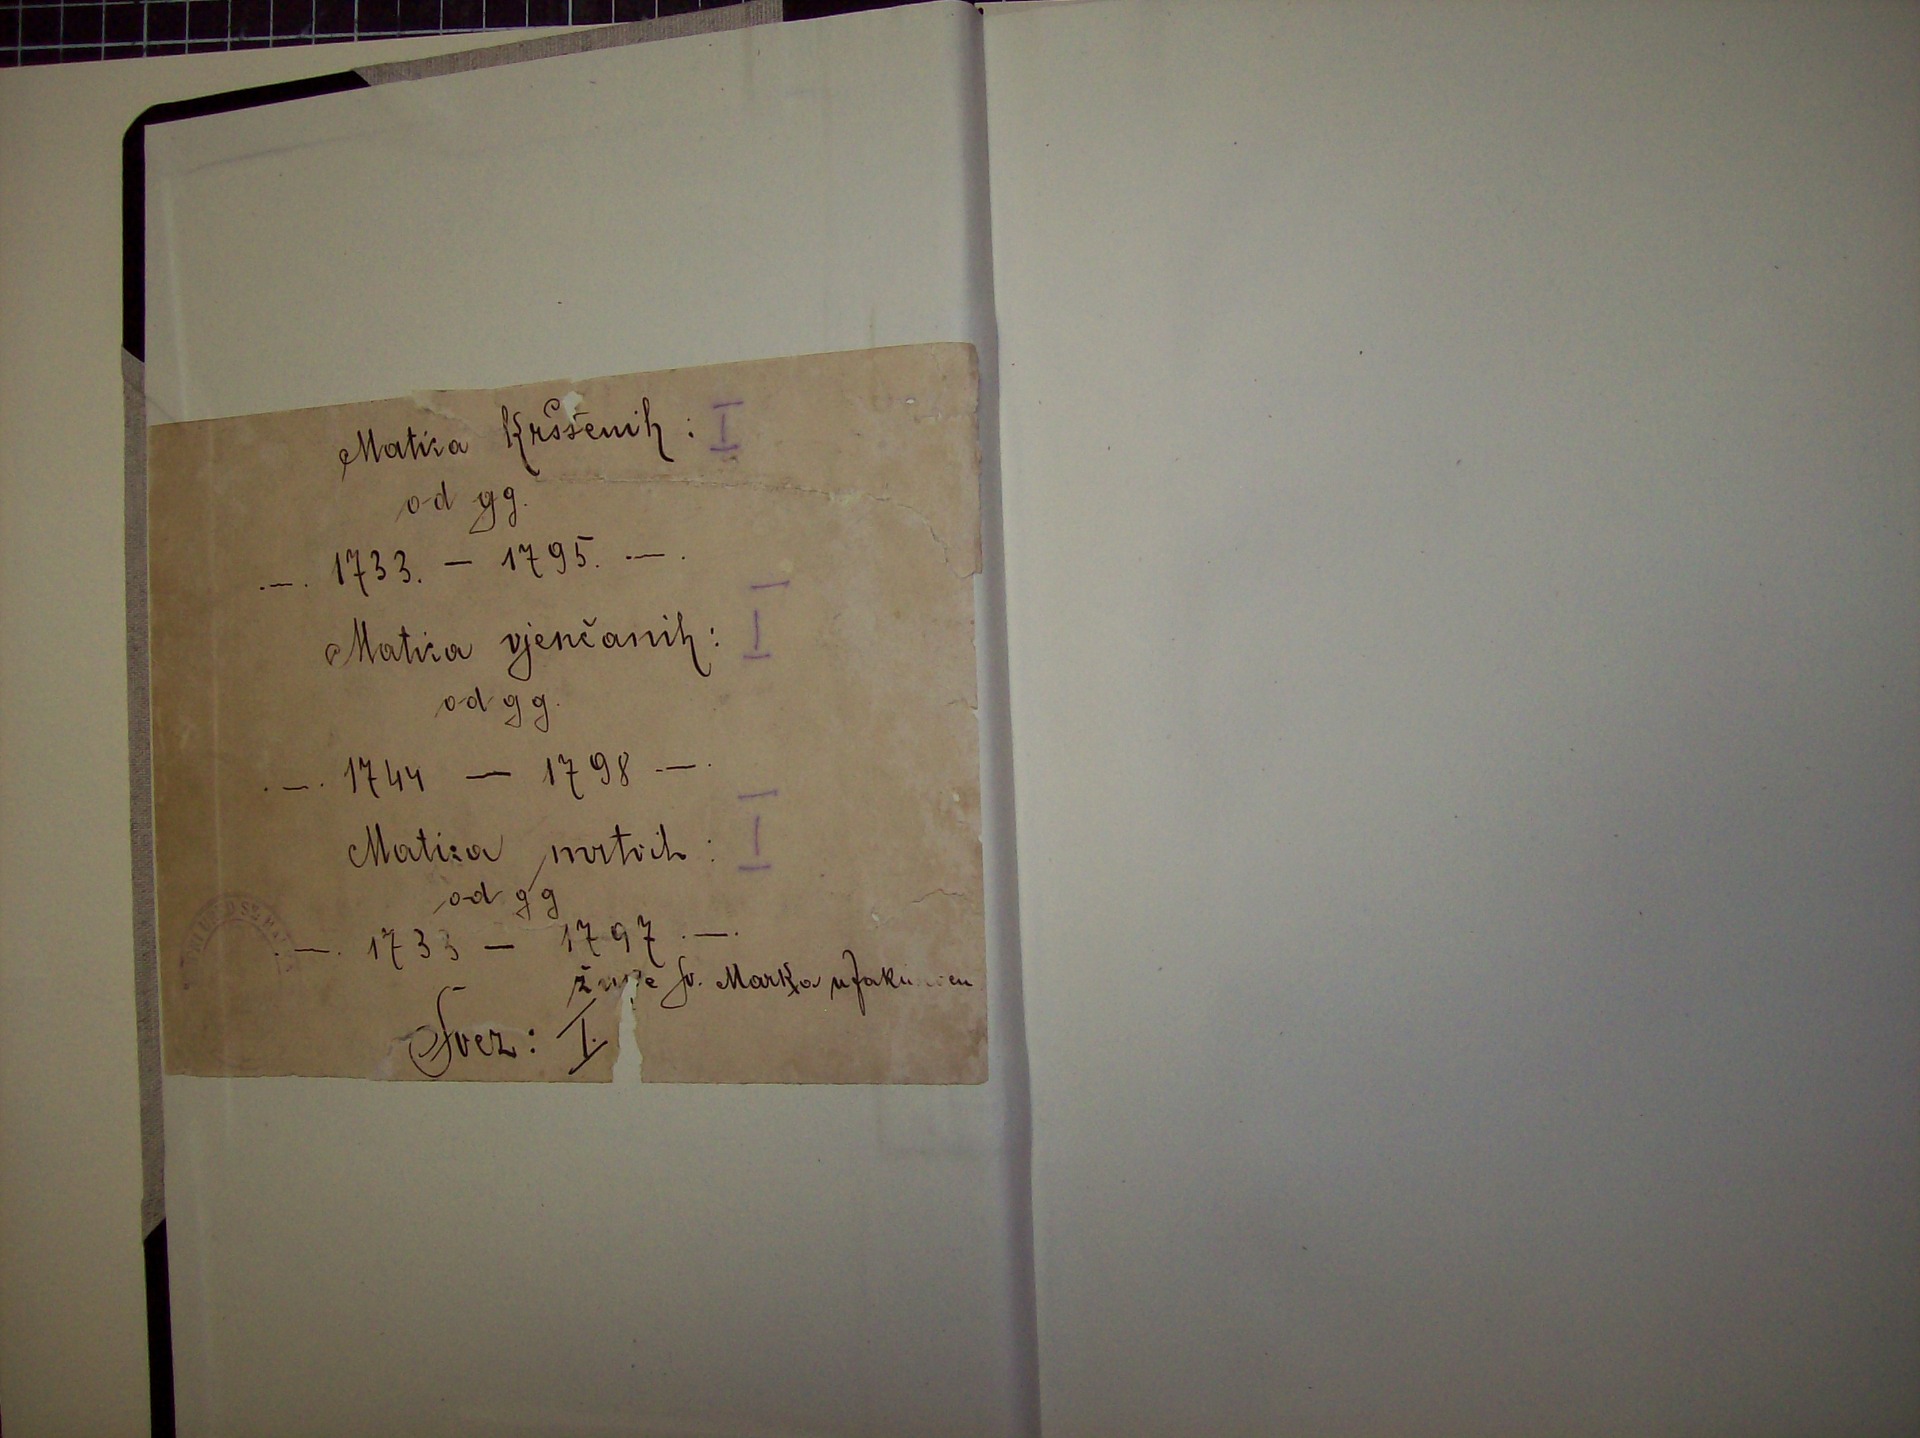 Matica Krščenih : I
od gg.
.—. 1733. — 1795. .—.
Matica vjenčanih : I
od gg.
.—. 1744 — 1798 .—.
Matica mrtvih : I
od gg
.—. 1733 — 1797 .—.
župe sv. Marka u
Svez : I.